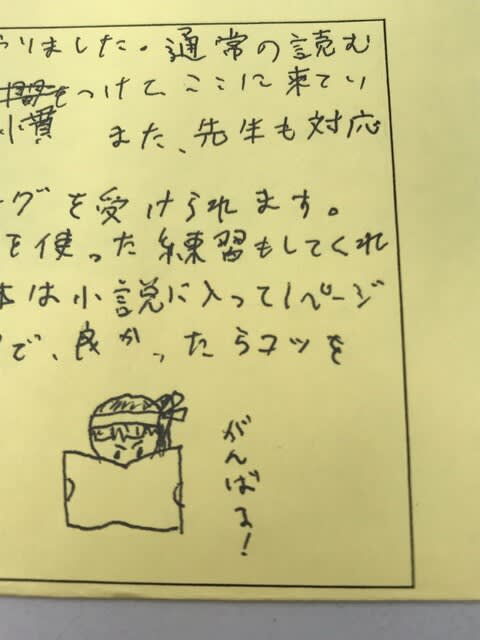 りました。通常の読む
をつけて、ここに来てい
慣 また、先生も対応
グを受けられます。
を使った練習もしてくれ
本は小説に入って1ページ
で、良かったらコツを
がんばる!